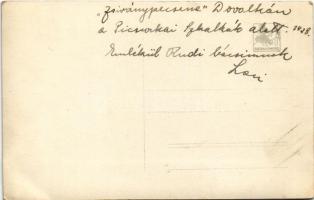 "Zsiványpecsenye" Dovalkán
a Picsorkai Szkalkák alatt. 1928.
Emlékül Rudi bácsimnak
Laci